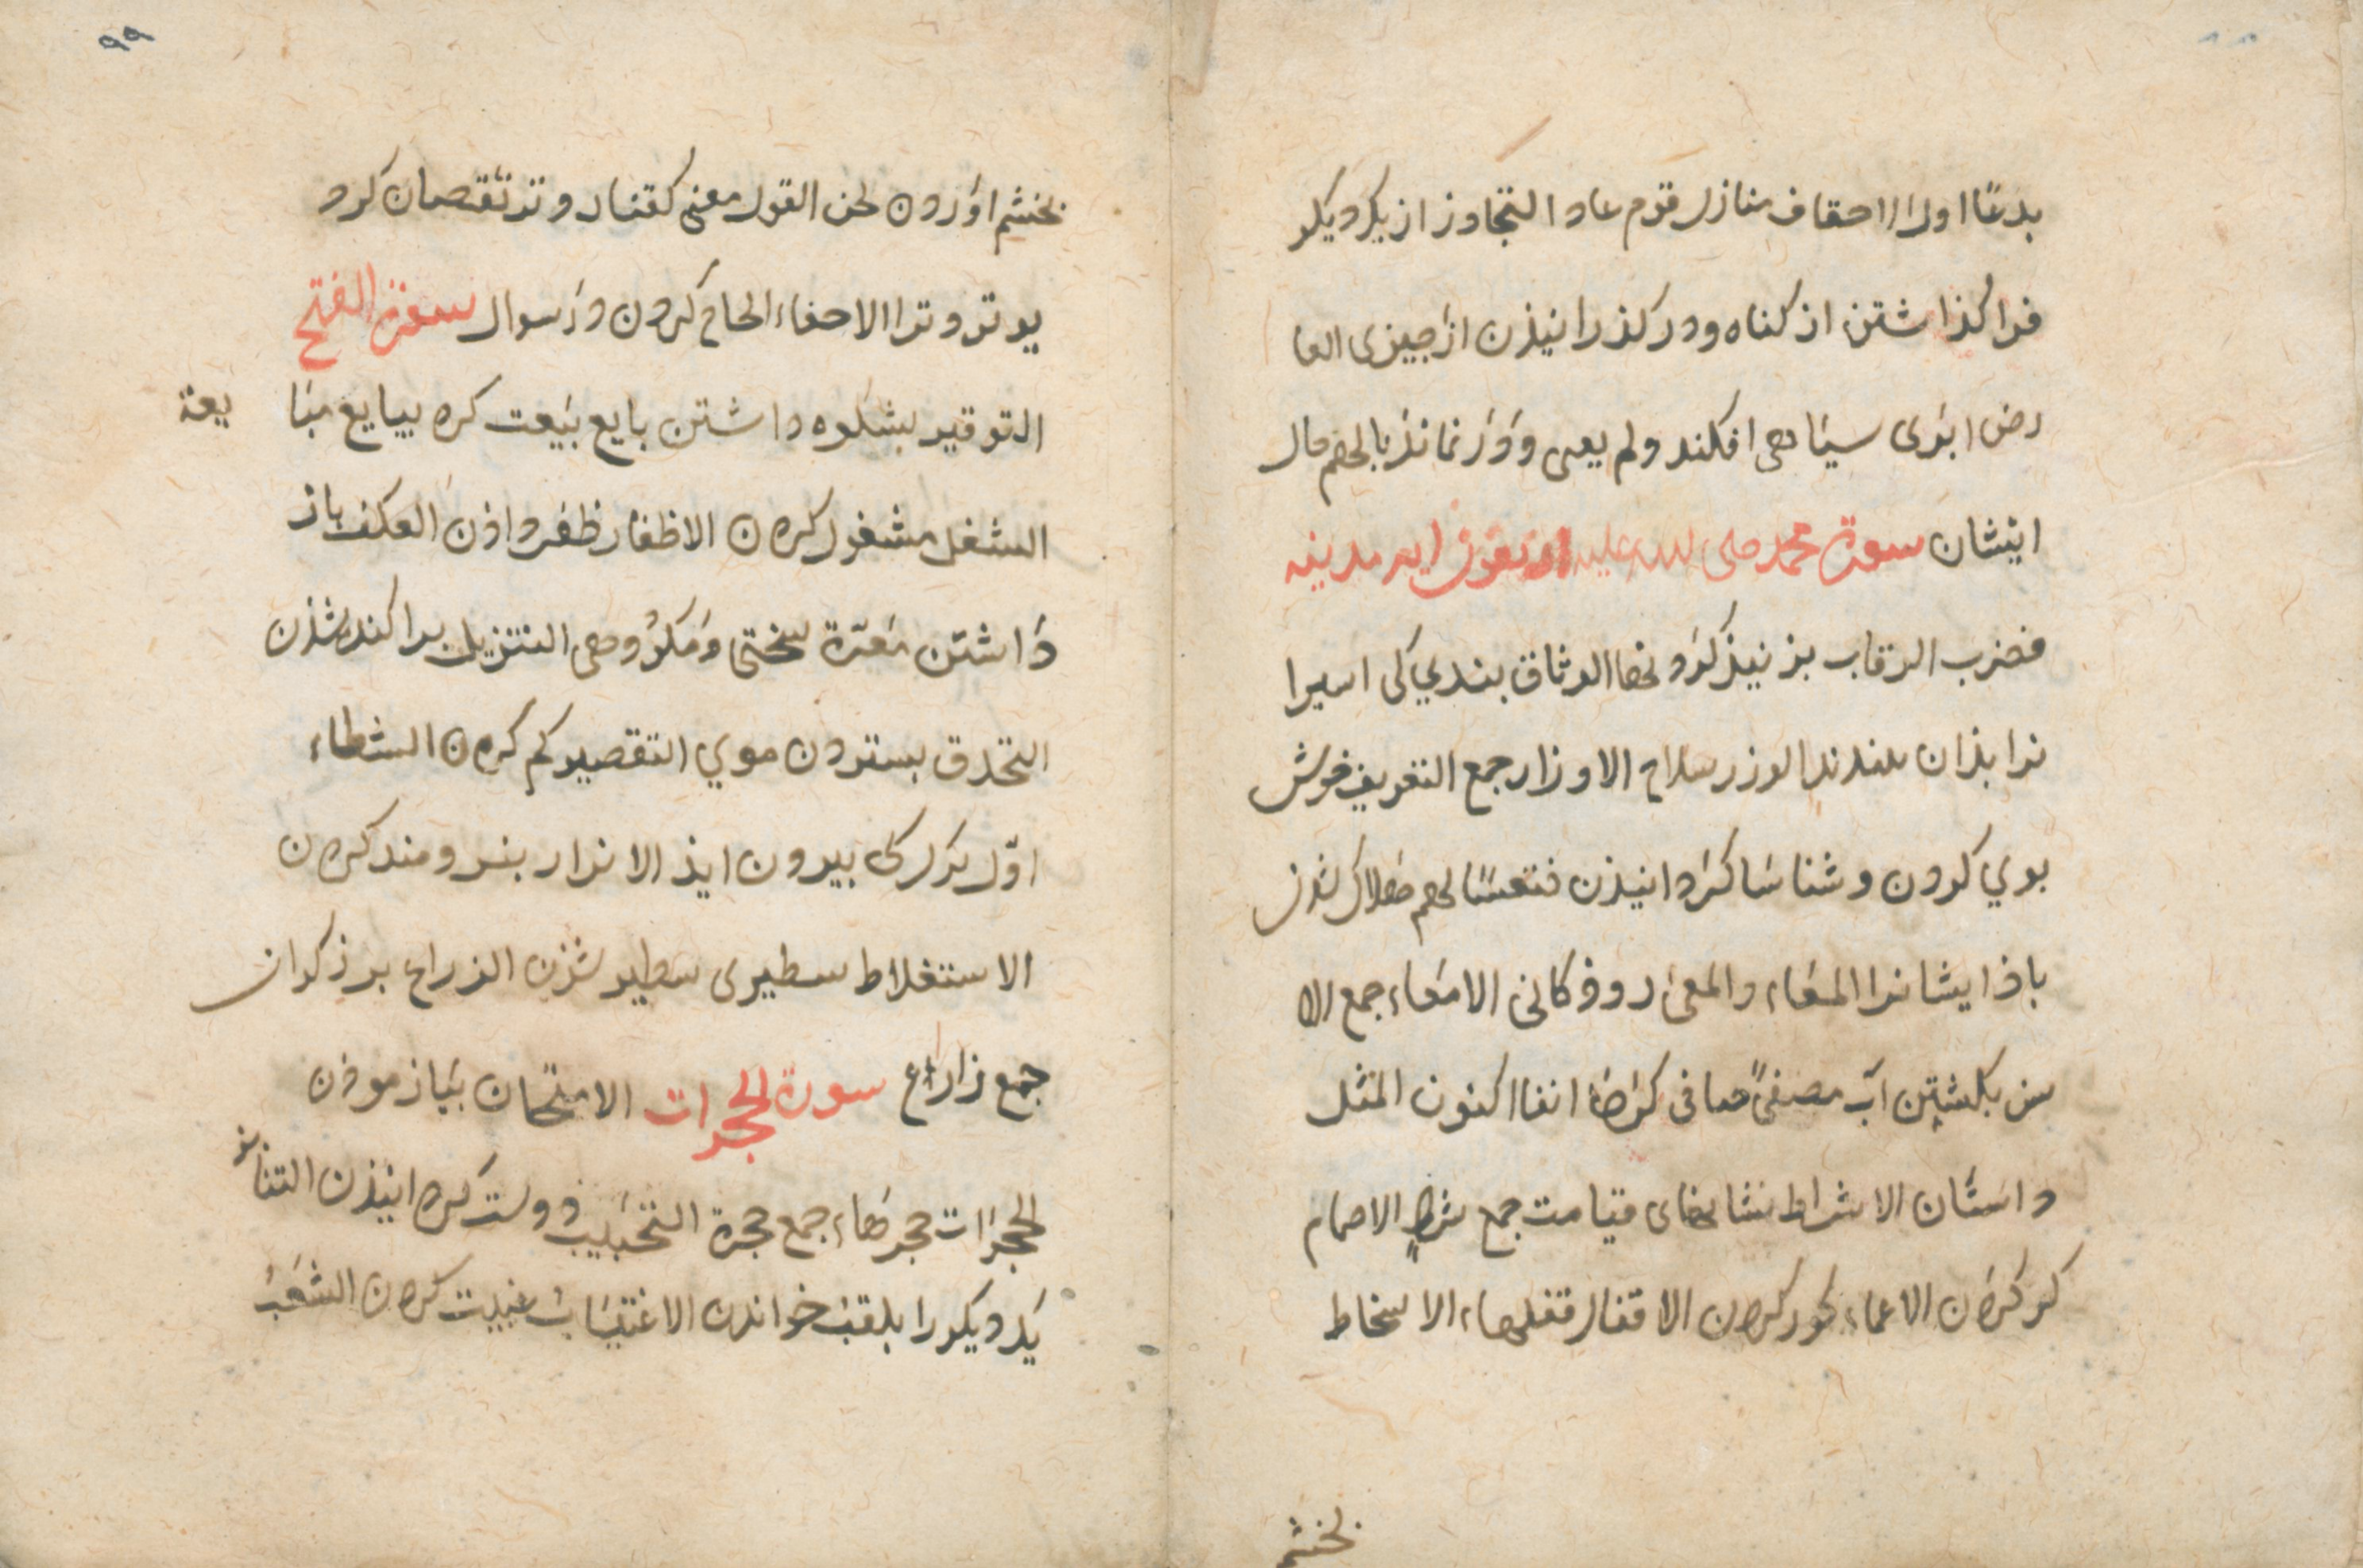 بدعًا اول الاحقاف منازل قوم عاد التجاوز از یکدیکر
فرا کذاشتن از کناه و در کذرانیذن از جیزی العا
رض ابری سیاهی افکند ولم یعی و دَرْ نماند بالهم حال
ایشان سورة محمد صلی الله علیه مدینه
فضرب الرقاب بز نیذ کردنها الوثاق بندی کی اسیرا
نرا بذان بندند الوزر سلاح الاوزار جمع التعریف خوش
بوی کردن و شناسا کردانیذن فتعسًا لهم هلاک شدن
باذ ایشانرا المعاء والمعی روذکانی الامعاء جمع الا
سن بکشتن آب مصفیً صافی کرده انفا اکنون المثل
داستان الاشراط نشانیهای قیامت جمع شرط الاصمام
کر کردن الاعماء کور کردن الاقفال قفلها الاسخاط
بخشم
۹۹
بخشم آوردن لحن القول معنی کفتار وتر نقصان کرد
یوتر وترا الاحفاء الحاح کردن در سوال سورة الفتح
التوقیر بشکوه داشتن بایع بیعت کرد یبایع مبا یعة
الشغل مشغول کردن الاظفار ظفر داذن العکف باز
داشتن معرّة سختی ومکروهی التزیل براکنده شذن
التحلق بستردن موی التقصیر کم کردن الشطاء
اوّل برک کی بیرون ایذ الازار نیرومند کردن
الاستغلاظ سطبری سطبر شذن الزراع برزکران
جمع زارع سورة الحجرات الامتحان بیازموذن
الحجرات حجرهاء جمع حجرة التحبیب دوست کردانیذن التنابز
یکدیکر را بلقب خواندن الاغتیاب غیبت کردن الشعب